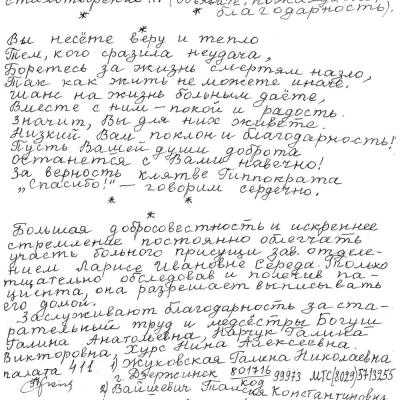 стихотворение... (объявите, пожалуйста,
благодарность).
* * *
Вы несёте веру и тепло
Тем, кого сразила неудача,
Боретесь за жизнь смертям назло,
Так как жить не можете иначе.
Шанс на жизнь больным даёте,
Вместе с ним – покой и радость.
Значит, Вы для них живёте.
Низкий Вам поклон и благодарность!
Пусть Вашей души доброта
Останется с Вами навечно!
За верность клятве Гиппократа
„Спасибо!" – говорим сердечно.
* * *
Большая добросовестность и искреннее
стремление постоянно облегчать
участь больного присущи зав. отделе-
нием Ларисе Ивановне Середа. Только
тщательно обследовав и полечив па-
циента, она разрешает выписывать
его домой.
Заслуживают благодарность за ста-
рательный труд и медсёстры Богуш
Галина Анатольевна, Галина
Викторовна, Хурс Нина Алексеевна.
палата 411 1) Жуковская Галина Николаевна
г. Дзержинск 801716 99973 МТС(8029)5713255
код
2) Вайшевич Таисия Константиновна